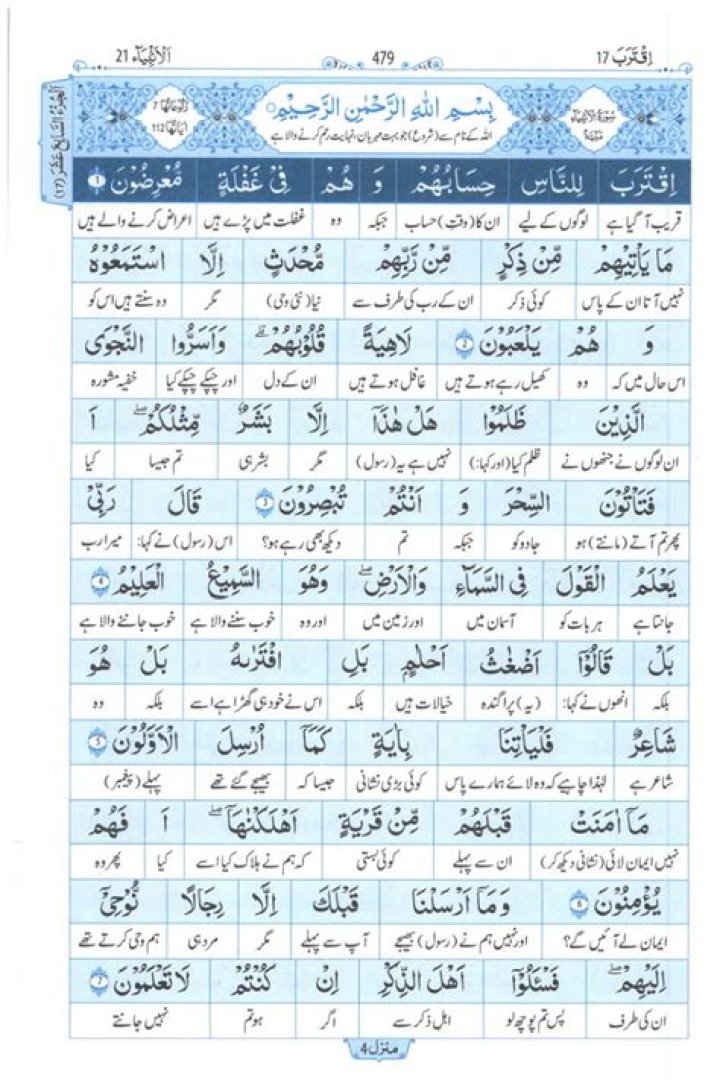 اِقْتَرَبَ 17 479 اَلْاَنْۢبِيَآء 21
سُوْرَةُ الْاَنْۢبِيَآءِ مَكِّيَّةٌ
بِسْمِ اللّٰهِ الرَّحْمٰنِ الرَّحِيْمِ
اللہ کے نام سے (شروع) جو بہت مہربان، نہایت رحم کرنے والا ہے
رُكُوْعَاتُهَا 7
اٰيَاتُهَا 112
اَلْجُزْءُ السَّابِعَ عَشَرَ (17)
اِقْتَرَبَ لِلنَّاسِ حِسَابُهُمْ وَ هُمْ فِيْ غَفْلَةٍ مُّعْرِضُوْنَ 1
قریب آ گیا ہے لوگوں کے لیے ان کا (وقتِ) حساب جبکہ وہ غفلت میں پڑے ہیں اعراض کرنے والے ہیں
مَا يَاْتِيْهِمْ مِّنْ ذِكْرٍ مِّنْ رَّبِّهِمْ مُّحْدَثٍ اِلَّا اسْتَمَعُوْهُ
نہیں آتا ان کے پاس کوئی ذکر ان کے رب کی طرف سے نیا (نئی وحی) مگر وہ سنتے ہیں اس کو
وَ هُمْ يَلْعَبُوْنَ 2 لَاهِيَةً قُلُوْبُهُمْ ۗ وَاَسَرُّوا النَّجْوَى
اس حال میں کہ وہ کھیل رہے ہوتے ہیں غافل ہوتے ہیں ان کے دل اور چپکے چپکے کیا خفیہ مشورہ
الَّذِيْنَ ظَلَمُوْا هَلْ هٰذَآ اِلَّا بَشَرٌ مِّثْلُكُمْ ۚ اَ
ان لوگوں نے جنھوں نے ظلم کیا (اور کہا:) نہیں ہے یہ (رسول) مگر بشر ہی تم جیسا کیا
فَتَاْتُوْنَ السِّحْرَ وَ اَنْتُمْ تُبْصِرُوْنَ 3 قَالَ رَبِّيْ
پھر تم آتے (مانتے) ہو جادو کو جبکہ تم دیکھ بھی رہے ہو؟ اس (رسول) نے کہا: میرا رب
يَعْلَمُ الْقَوْلَ فِي السَّمَآءِ وَالْاَرْضِ ۖ وَهُوَ السَّمِيْعُ الْعَلِيْمُ 4
جانتا ہے ہر بات کو آسمان میں اور زمین میں اور وہ خوب سننے والا ہے خوب جاننے والا ہے
بَلْ قَالُوْٓا اَضْغٰثُ اَحْلَامٍۭ بَلِ افْتَرٰىهُ بَلْ هُوَ
بلکہ انھوں نے کہا: (یہ) پراگندہ خیالات ہیں بلکہ اس نے خود ہی گھڑا ہے اسے بلکہ وہ
شَاعِرٌ فَلْيَاْتِنَا بِاٰيَةٍ كَمَآ اُرْسِلَ الْاَوَّلُوْنَ 5
شاعر ہے لہٰذا چاہیے کہ وہ لائے ہمارے پاس کوئی بڑی نشانی جیسا کہ بھیجے گئے تھے پہلے (پیغمبر)
مَآ اٰمَنَتْ قَبْلَهُمْ مِّنْ قَرْيَةٍ اَهْلَكْنٰهَا ۚ اَ فَهُمْ
نہیں ایمان لائی (نشانی دیکھ کر) ان سے پہلے کوئی بستی کہ ہم نے ہلاک کیا اسے کیا پھر وہ
يُؤْمِنُوْنَ 6 وَمَآ اَرْسَلْنَا قَبْلَكَ اِلَّا رِجَالًا نُّوْحِيْٓ
ایمان لے آئیں گے؟ اور نہیں ہم نے (رسول) بھیجے آپ سے پہلے مگر مرد ہی ہم وحی کرتے تھے
اِلَيْهِمْ ۖ فَسْئَلُوْٓا اَهْلَ الذِّكْرِ اِنْ كُنْتُمْ لَا تَعْلَمُوْنَ 7
ان کی طرف پس تم پوچھ لو اہل ذکر سے اگر ہو تم نہیں جانتے
منزل 4